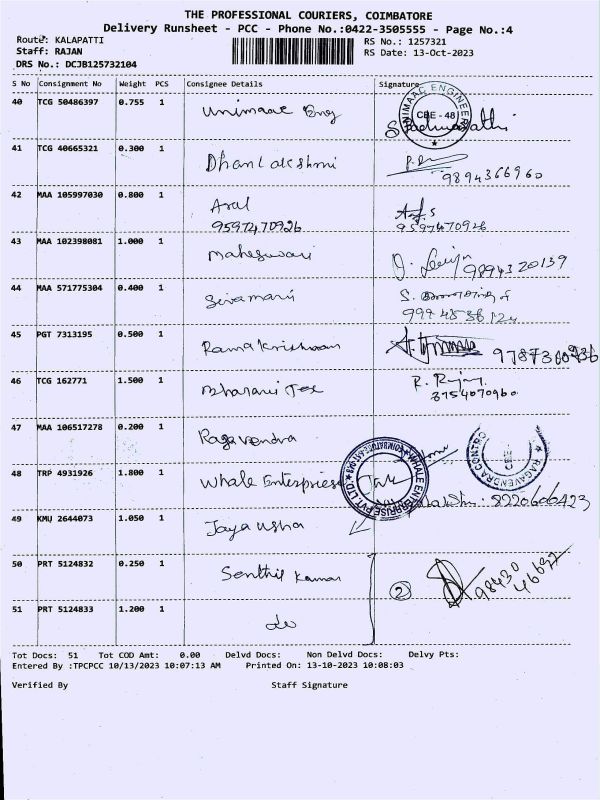 THE PROFESSIONAL COURIERS, COIMBATORE
Delivery Runsheet - PCC - Phone No.:0422-3505555 - Page No.:4
Route: KALAPATTI
RS No.: 1257321
Staff: RAJAN
RS Date: 13-Oct-2023
DRS No.: DCJB125732104
S No Consignment No Weight PCS Consignee Details Signature
40 TCG 50486397 0.755 1 Unimaac Eng
UNIMAAC ENGINEERS CBE - 48
41 TCG 40665321 0.300 1 Dhanlakshmi
9894366960
42 MAA 105997030 0.800 1 Aral
9597470926 9597470926
43 MAA 102398081 1.000 1 Maheswari
9894320139
44 MAA 571775304 0.400 1 Sivamani
S.
45 PGT 7313195 0.500 1 Ramakrishnan
46 TCG 162771 1.500 1 Bharani Tex R. Raju
3754070960
47 MAA 106517278 0.200 1 Ragavendra
RAGAVENDRA CBE
48 TRP 4931926 1.800 1 Whale Enterprises
WHALE ENTERPRISE PVT. LTD. COIMBATORE-641 048
8220606423
49 KMU 2644073 1.050 1 Jaya Usha
50 PRT 5124832 0.250 1 Senthil Kumar
2 98430 46637
51 PRT 5124833 1.200 1 do
Tot Docs: 51 Tot COD Amt: 0.00 Delvd Docs: Non Delvd Docs: Delvy Pts:
Entered By :TPCPCC 10/13/2023 10:07:13 AM Printed On: 13-10-2023 10:08:03
Verified By Staff Signature